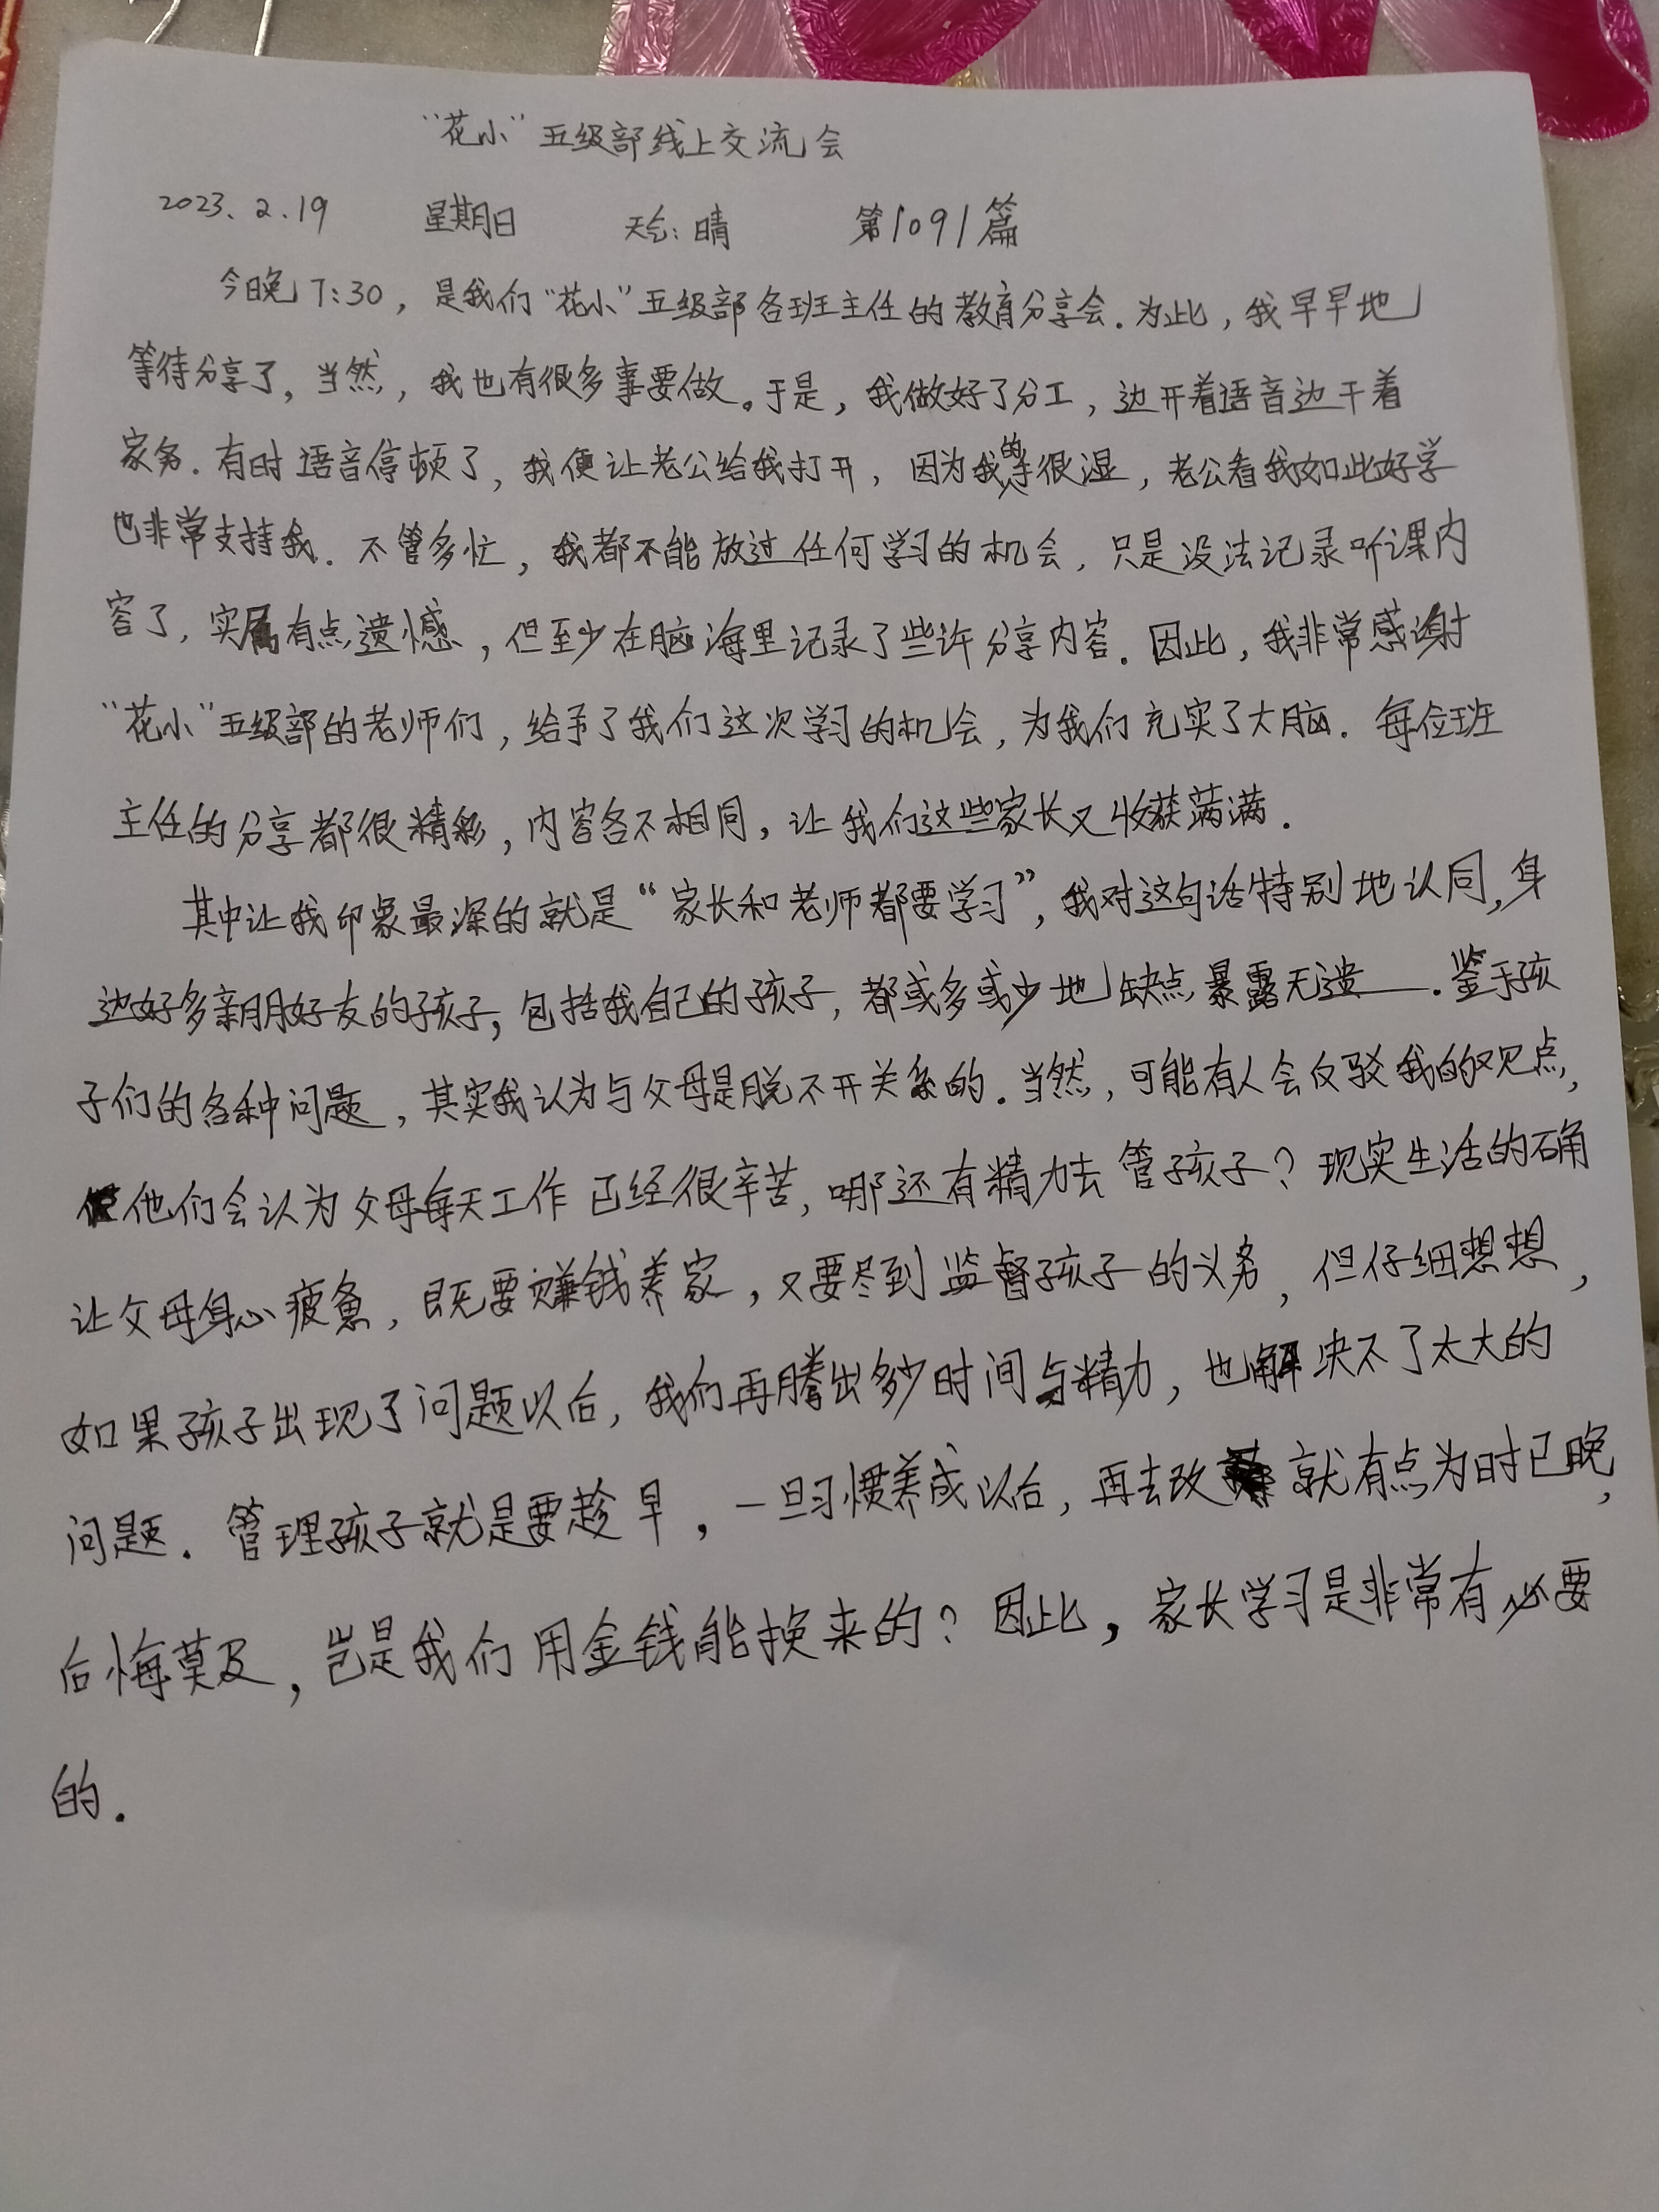 “花小”五级部线上交流会
2023.2.19 星期日 天气:晴 第1091篇
今晚7:30，是我们“花小”五级部各班主任的教育分享会.为此，我早早地
等待分享了，当然，我也有很多事要做。于是，我做好了分工，边开着语音边干着
家务.有时语音停顿了，我便让老公给我打开，因为我的手很湿，老公看我如此好学
也非常支持我.不管多忙，我都不能放过任何学习的机会，只是没法记录听课内
容了，实属有点遗憾，但至少在脑海里记录了些许分享内容.因此，我非常感谢
“花小”五级部的老师们，给予了我们这次学习的机会，为我们充实了大脑.每位班
主任的分享都很精彩，内容各不相同，让我们这些家长又收获满满.
其中让我印象最深的就是“家长和老师都要学习”，我对这句话特别地认同，身
边好多亲朋好友的孩子，包括我自己的孩子，都或多或少地缺点暴露无遗.鉴于孩
子们的各种问题，其实我认为与父母是脱不开关系的.当然，可能有人会反驳我的观点，
他们会认为父母每天工作已经很辛苦，哪还有精力去管孩子？现实生活的确
让父母身心疲惫，既要赚钱养家，又要尽到监督孩子的义务，但仔细想想，
如果孩子出现了问题以后，我们再腾出多少时间与精力，也解决不了太大的
问题.管理孩子就是要趁早，一旦习惯养成以后，再去改就有点为时已晚，
后悔莫及，岂是我们用金钱能换来的？因此，家长学习是非常有必要
的.